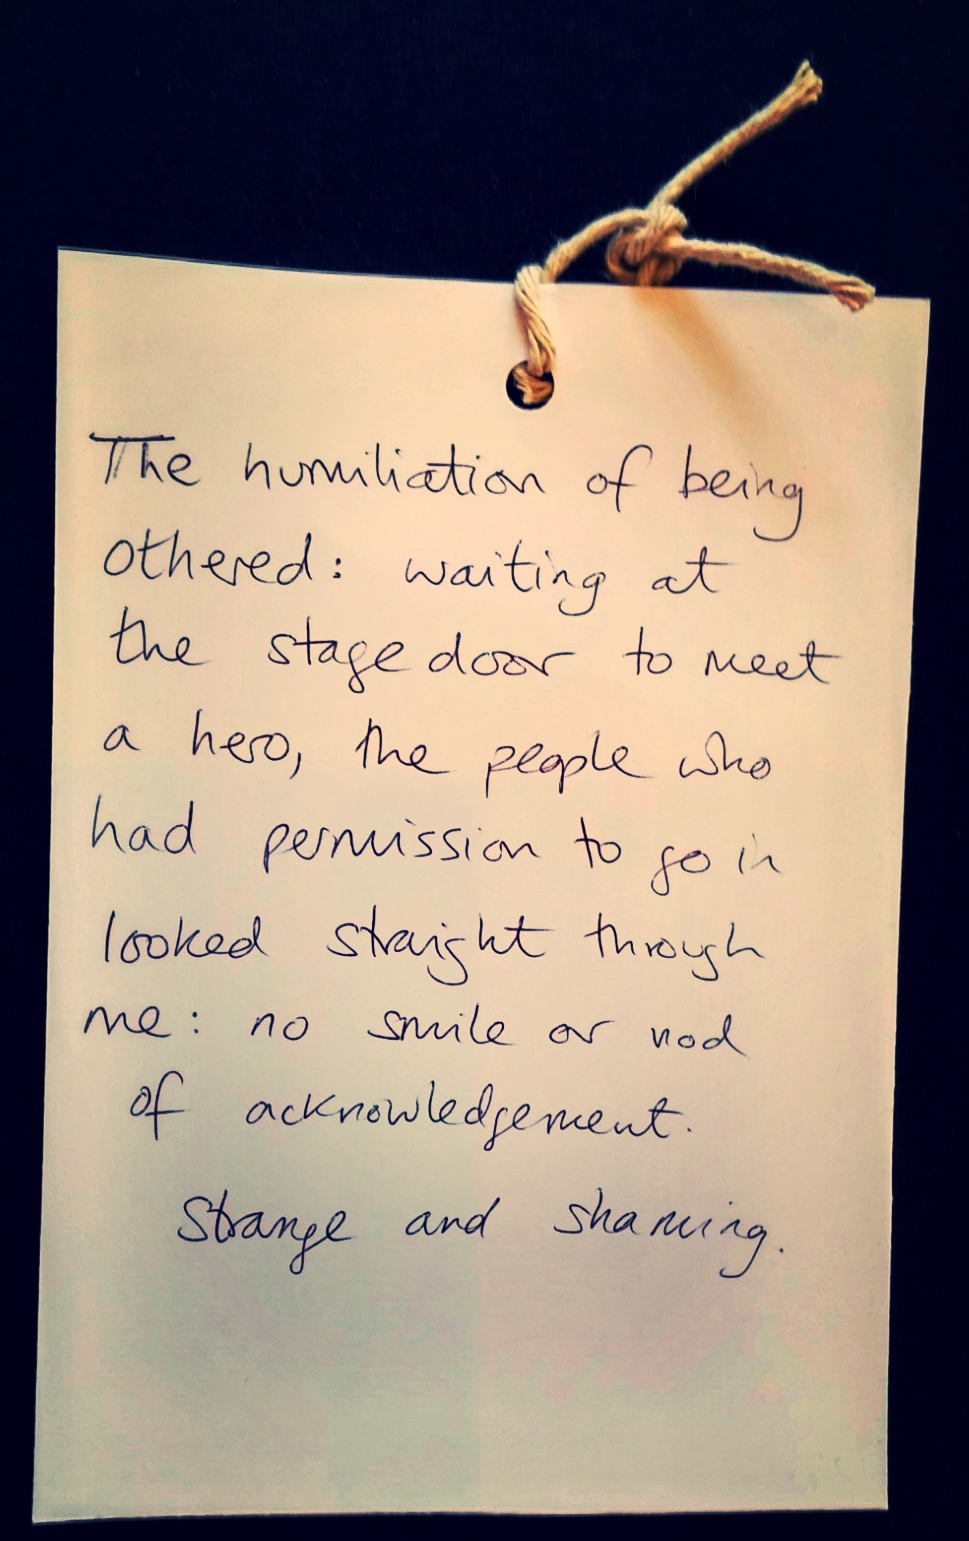 The humiliation of being
othered: waiting at
the stage door to meet
a hero, the people who
had permission to go in
looked straight through
me: no smile or nod
of acknowledgement.
Strange and shaming.